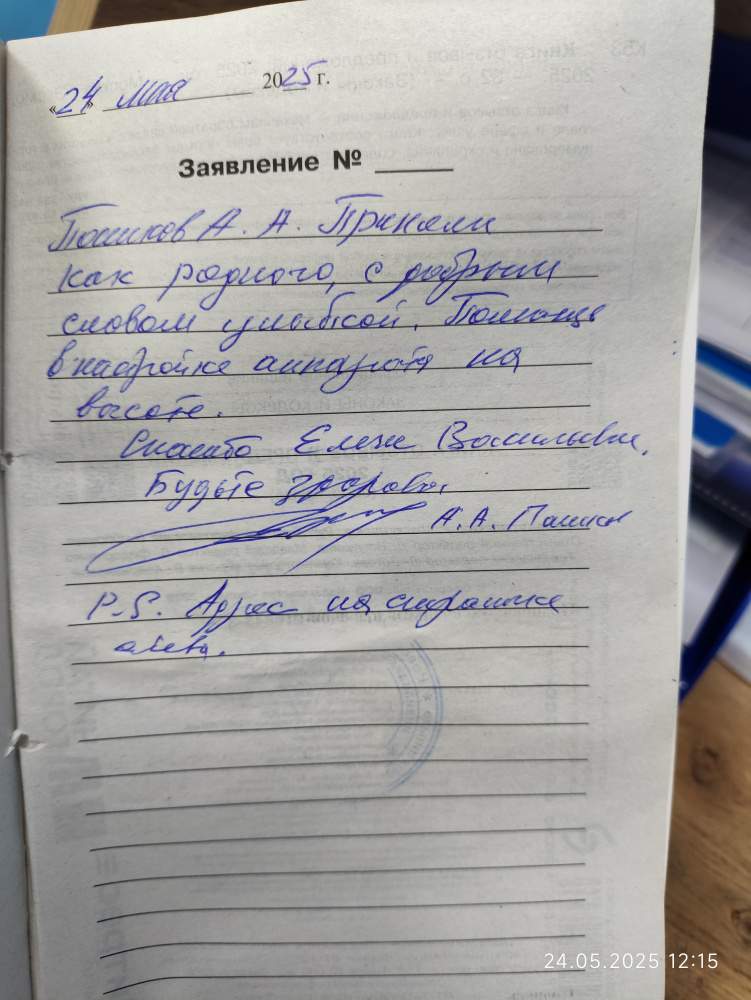 «24» мая 2025 г.
Заявление № ____
А. А. Приняли
как родного, с добрым
словом улыбкой. Помощь
в настройке аппарата на
высоте.
Спасибо Елене Васильевне.
Будьте здоровы.
А.А.
P.S. Адрес на странице
слева.
24.05.2025 12:15